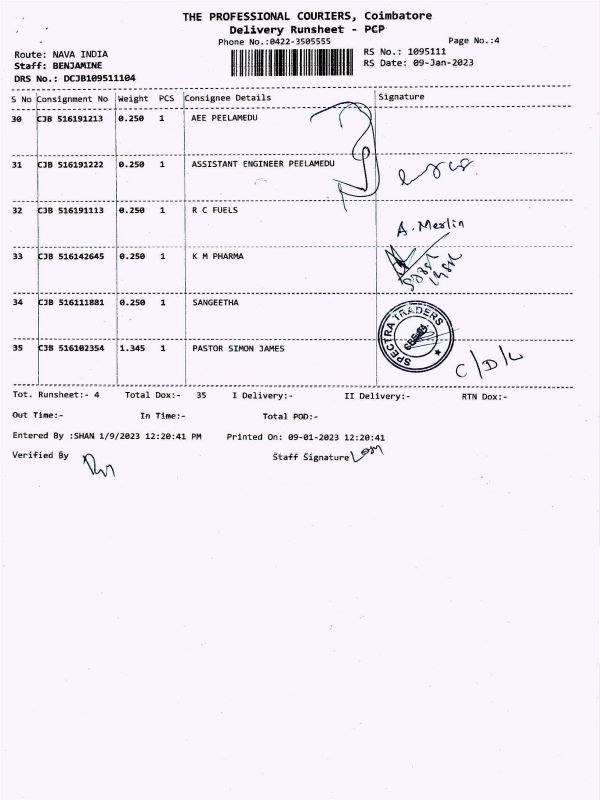 THE PROFESSIONAL COURIERS, Coimbatore
Delivery Runsheet - PCP
Phone No.:0422-3505555
Page No.:4
Route: NAVA INDIA
RS No.: 1095111
Staff: BENJAMINE
RS Date: 09-Jan-2023
DRS No.: DCJB109511104
S No Consignment No Weight PCS Consignee Details Signature
30 CJB 516191213 0.250 1 AEE PEELAMEDU
31 CJB 516191222 0.250 1 ASSISTANT ENGINEER PEELAMEDU
32 CJB 516191113 0.250 1 R C FUELS
A. Merlin
33 CJB 516142645 0.250 1 K M PHARMA
34 CJB 516111881 0.250 1 SANGEETHA
SPECTRA TRADERS
35 CJB 516102354 1.345 1 PASTOR SIMON JAMES
C/D/L
Tot. Runsheet:- 4 Total Dox:- 35 I Delivery:- II Delivery:- RTN Dox:-
Out Time:- In Time:- Total POD:-
Entered By :SHAN 1/9/2023 12:20:41 PM Printed On: 09-01-2023 12:20:41
Verified By Staff Signature